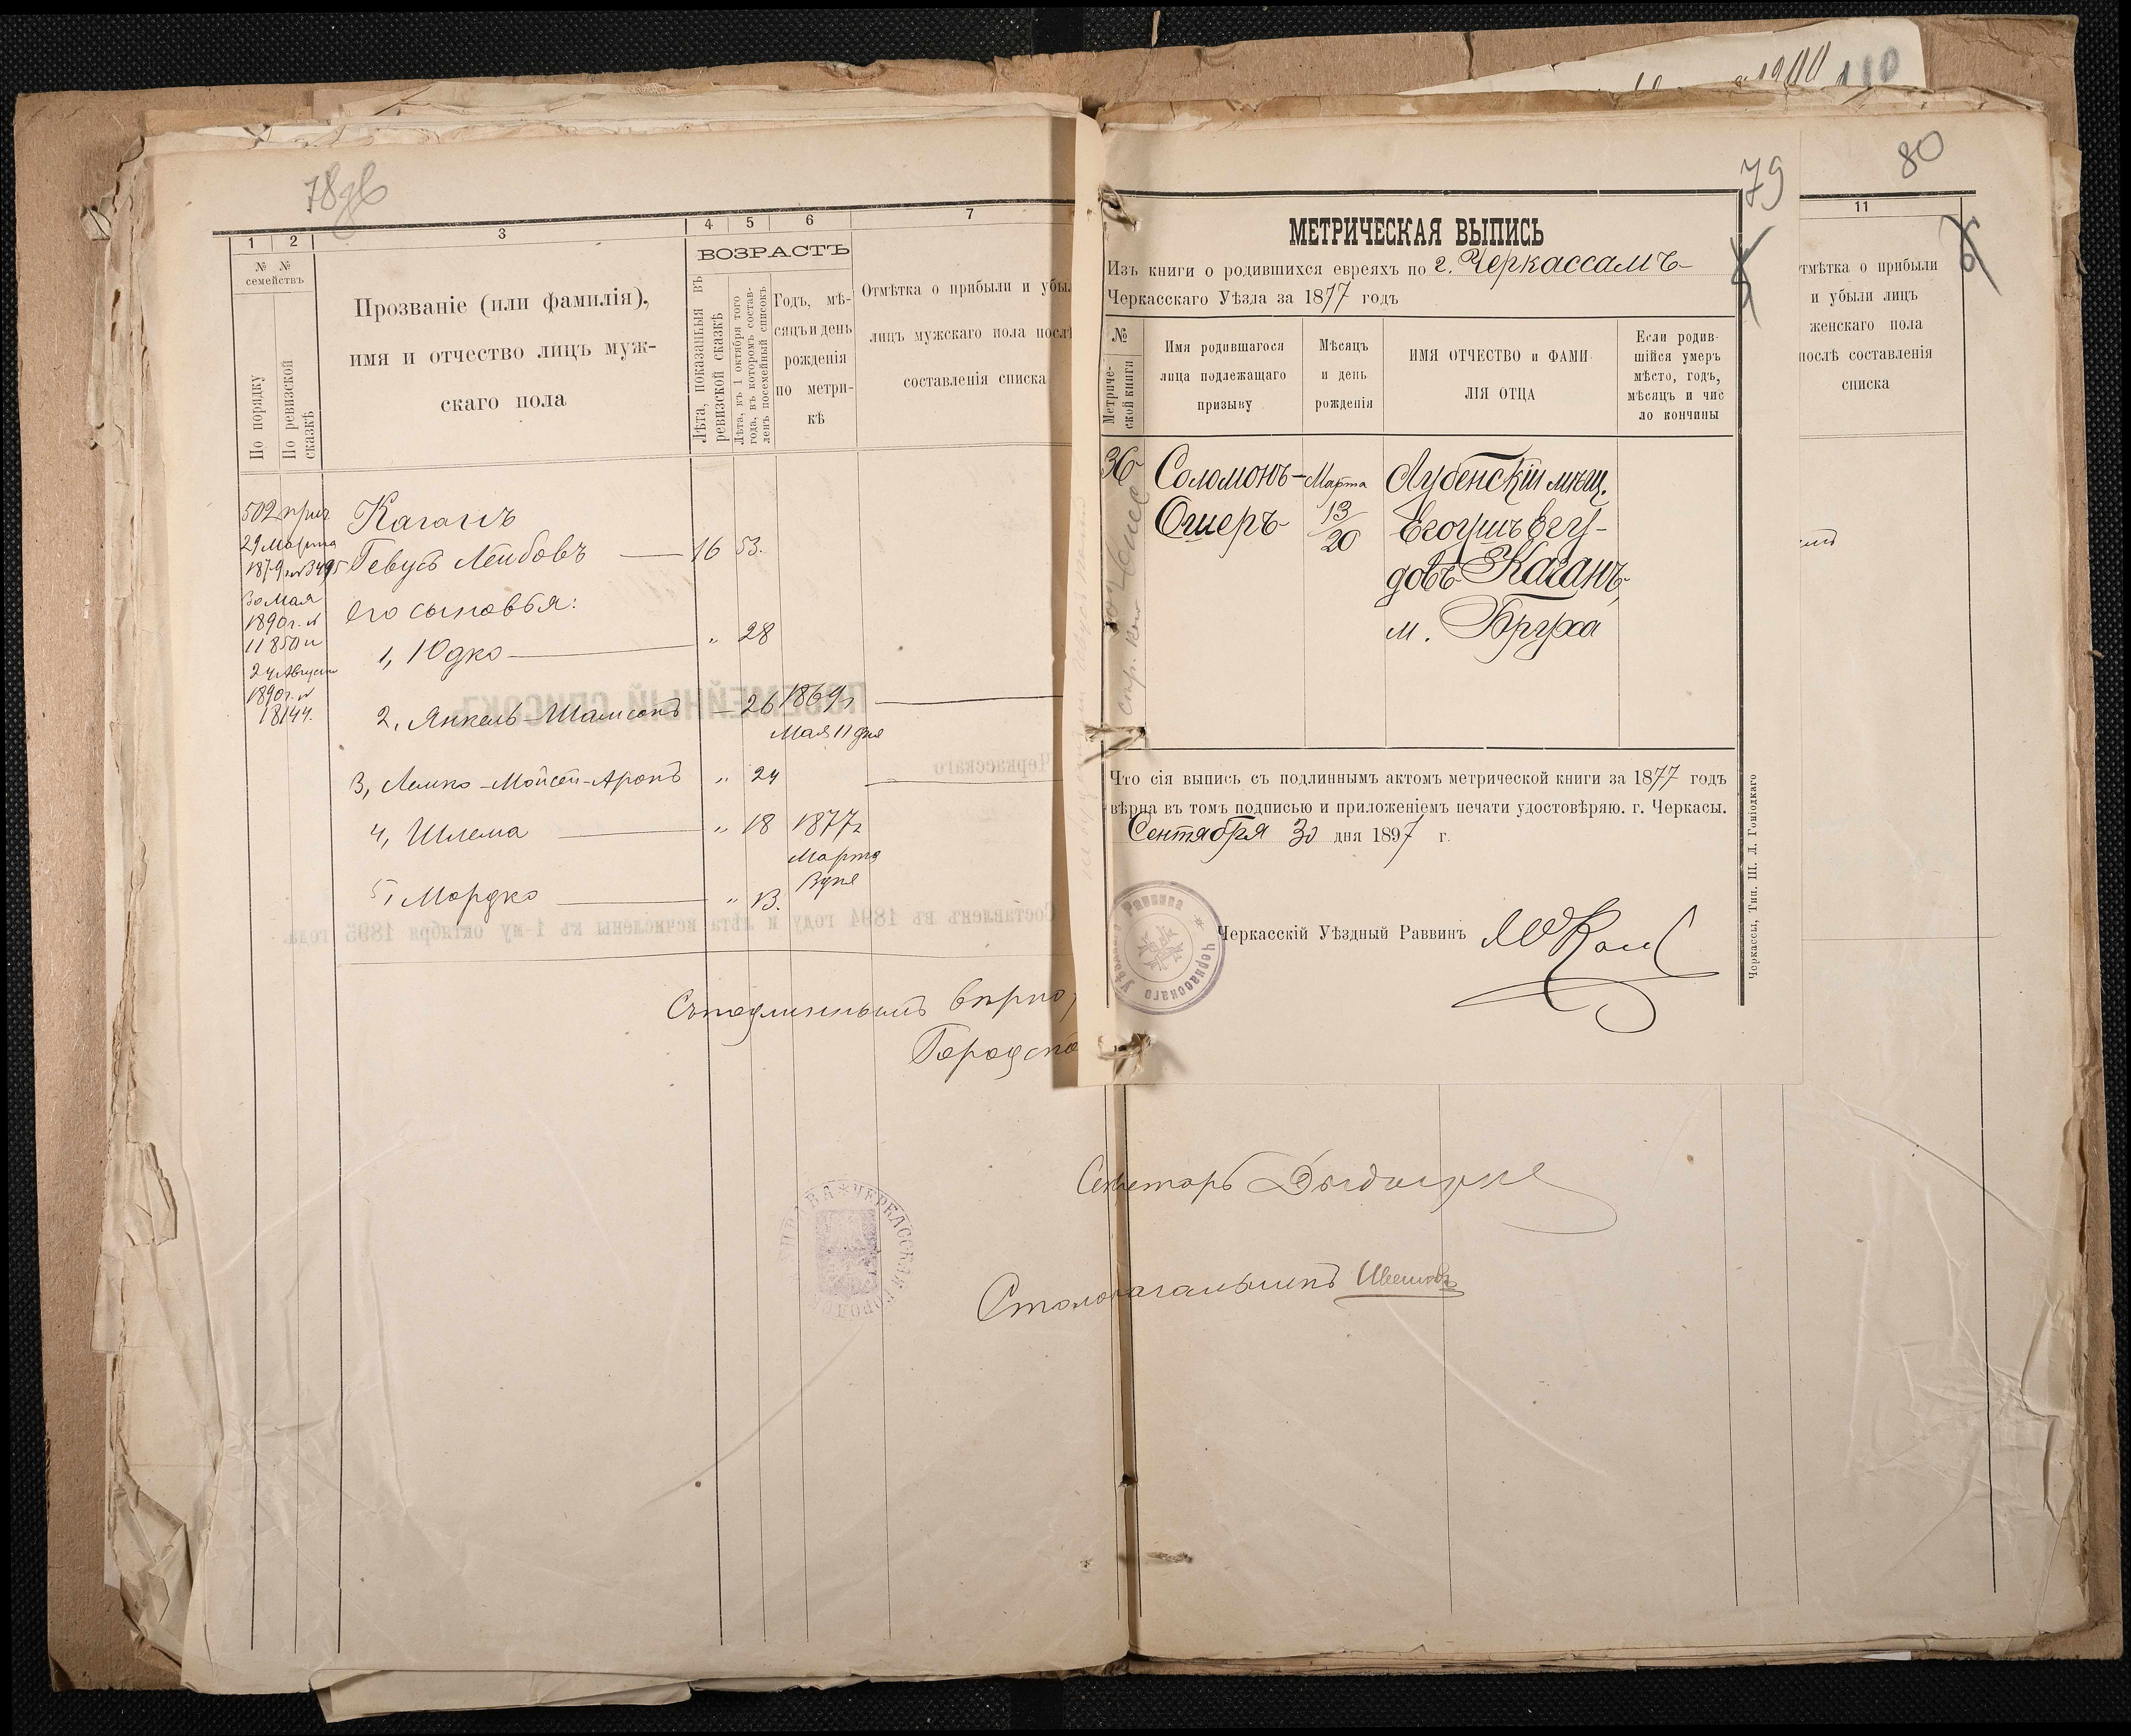 80
79
1
2
3
4
5
6
7
№ №
семействъ
По порядку
По ревизской сказкѣ
Прозваніе (или фамилія),
имя и отчество лицъ муж-
скаго пола
ВОЗРАСТЪ
Лѣта, показанныя въ
ревизской сказкѣ
Лѣта, къ 1 октября того
года, въ которомъ состав-
ленъ посемейный списокъ
Годъ, мѣ-
сяцъ и день
рожденія
по метри-
кѣ
Отмѣтка о прибыли и убы
лицъ мужскаго пола посл
составленія списка
502 прич
29 Марта
1879 № 3495
30 Мая
1890 г. №
11850 и
24 Августа
1890 г. №
18144.
Каганъ
Гевусь Лейбовъ 16 53.
его сыновья:
1, Юдко „ 28
2, Янкель-Шамсонъ 26 1869 г
Мая 11 дня
3, Лемко-Мойсей-Аронъ „ 24
4, Шлема „ 18 1877 г
Марта
3 дня
5, Мордко „ 13.
ПОСЕМЕЙНЫЙ СПИСОКЪ
Черкасскаго
Составленъ въ 1894 году и лѣта исчислены къ 1-му октября 1895 года.
Съ подлиннымъ вѣрно,
Городско
ЧЕРКАССКАЯ ГОРОДСК
МЕТРИЧЕСКАЯ ВЫПИСЬ
Изъ книги о родившихся евреяхъ по г. Черкассамъ
Черкасскаго Уѣзла за 1877 годъ
№
Метриче-
ской книги
Имя родившагося
лица подлежащаго
призыву
Мѣсяцъ
и день
рожденія
ИМЯ ОТЧЕСТВО и ФАМИ-
ЛІЯ ОТЦА
Если родив-
шійся умеръ
мѣсто, годъ,
мѣсяцъ и чис
ло кончины
36 Соломонъ- Марта Лубенскій мѣщ.
Ошеръ 13/20 Егошуъ Егу-
довъ Каганъ,
м. Бруха
Что сія выпись съ подлиннымъ актомъ метрической книги за 1877 годъ
вѣрна въ томъ подписью и приложеніемъ печати удостовѣряю. г. Черкасы.
Сентября 30 дня 1897 г.
Черкасскій Уѣздный Раввинъ
Раввина Черкасскаго
Черкассы, Тип. Ш. Л. Гоніодкаго
11
тмѣтка о прибыли
и убыли лицъ
женскаго пола
послѣ составленія
списка
Секретарь
Столоначальникъ